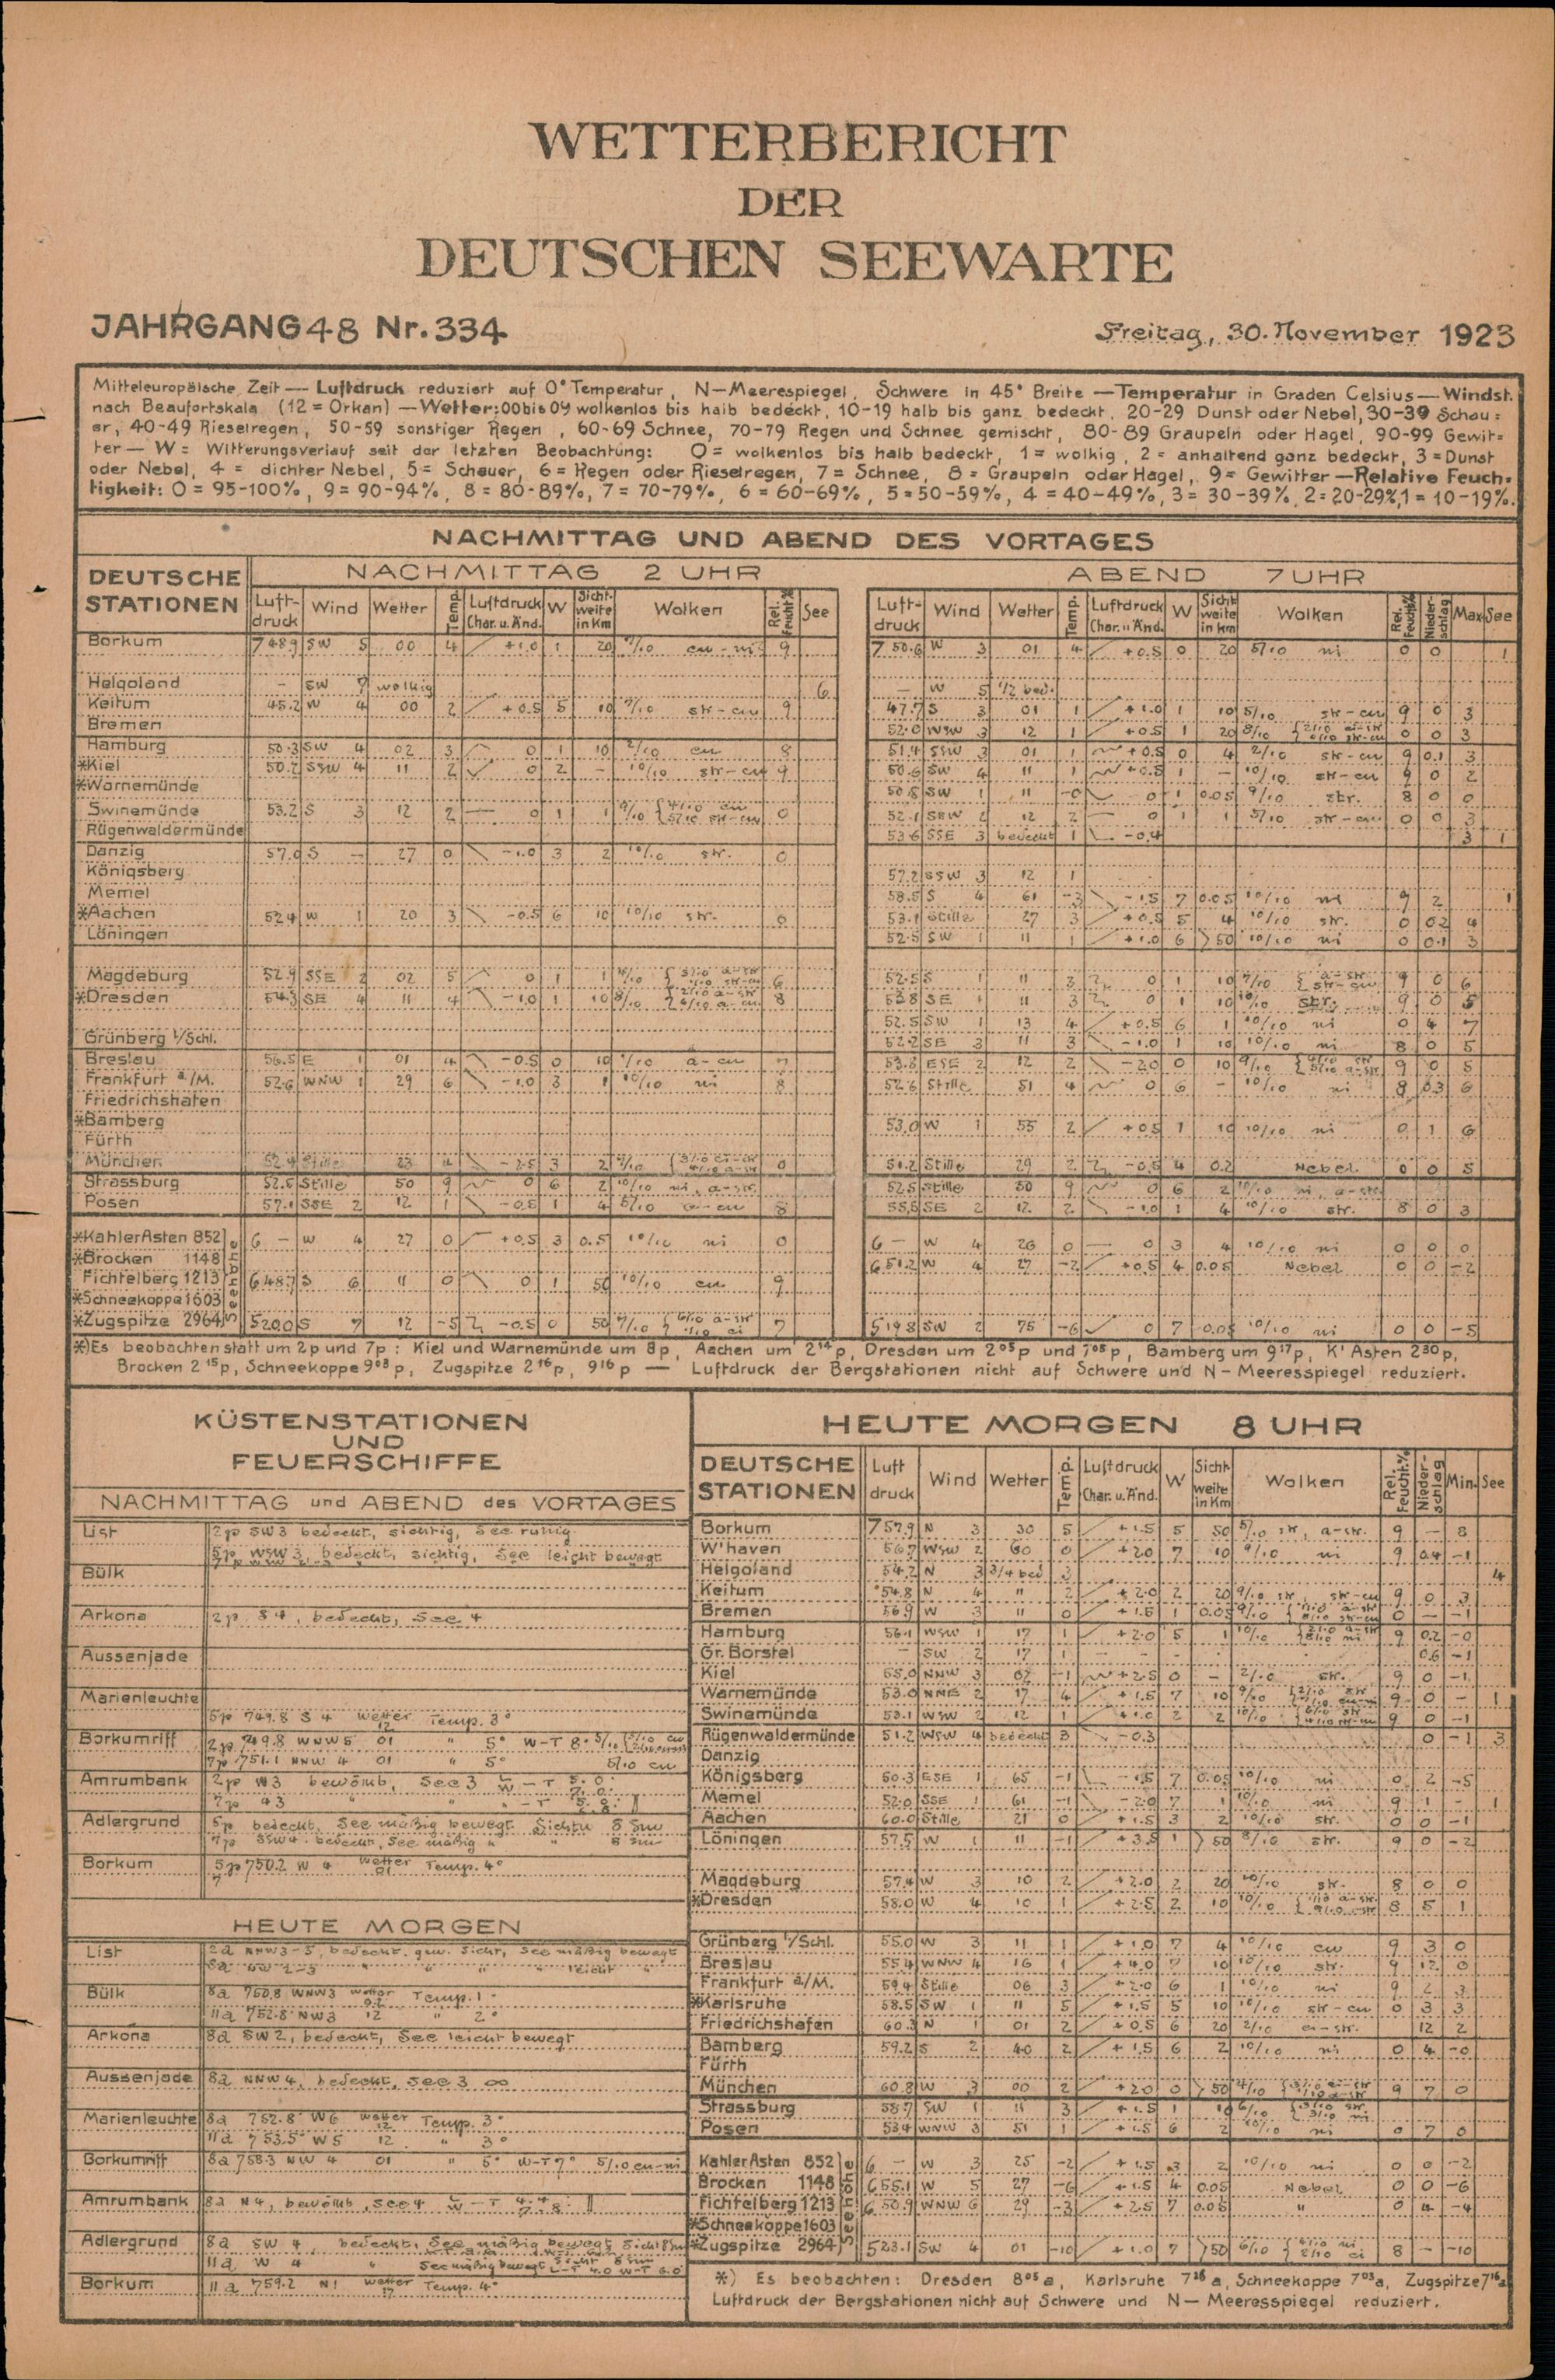 WETTERBERICHT
DER
DEUTSCHEN SEEWARTE
JAHRGANG 48 Nr. 334
Freitag, 30. November 1923
Mitteleuropäische Zeit — Luftdruck reduziert auf 0° Temperatur, N—Meerespiegel, Schwere in 45° Breite — Temperatur in Graden Celsius — Windst.
nach Beaufortskala (12 = Orkan) — Wetter: 00 bis 09 wolkenlos bis halb bedeckt, 10-19 halb bis ganz bedeckt, 20-29 Dunst oder Nebel, 30-39 Schau=
er, 40-49 Rieselregen, 50-59 sonstiger Regen, 60-69 Schnee, 70-79 Regen und Schnee gemischt, 80-89 Graupeln oder Hagel, 90-99 Gewit=
ter — W = Witterungsverlauf seit der letzten Beobachtung: 0 = wolkenlos bis halb bedeckt, 1 = wolkig, 2 = anhaltend ganz bedeckt, 3 = Dunst
oder Nebel, 4 = dichter Nebel, 5 = Schauer, 6 = Regen oder Rieselregen, 7 = Schnee, 8 = Graupeln oder Hagel, 9 = Gewitter — Relative Feuch=
tigkeit: 0 = 95-100%, 9 = 90-94%, 8 = 80-89%, 7 = 70-79%, 6 = 60-69%, 5 = 50-59%, 4 = 40-49%, 3 = 30-39%, 2 = 20-29%, 1 = 10-19%.
NACHMITTAG UND ABEND DES VORTAGES
DEUTSCHE STATIONEN
NACHMITTAG 2 UHR
ABEND 7 UHR
Luft-druck Wind Wetter Temp. Luftdruck Char. u. Änd. W Sicht-weite in Km Wolken Rel. Feucht.% See
Luft-druck Wind Wetter Temp. Luftdruck Char. u. Änd. W Sicht weite in km Wolken Rel. Feucht% Nieder-schlag Max. See
Borkum 748.9 SW 5 00 4 +1.0 1 20 7/10 cu-ni 9 750.6 W 3 01 4 +0.5 0 20 5/10 ni 0 0 1
Helgoland – SW 7 wolkig 6 – W 5 1/2 bed.
Keitum 45.2 W 4 00 2 +0.5 5 10 7/10 str-cu 9 47.7 S 3 01 1 +1.0 1 10 5/10 str-cu 9 0 3
Bremen 52.0 WSW 3 12 1 +0.5 1 20 8/10 0 0 3
Hamburg 50.3 SW 4 02 3 0 1 10 2/10 cu 8 51.4 SSW 3 01 1 +0.5 0 4 2/10 str-cu 9 0.1 3
*Kiel 50.2 SSW 4 11 2 0 2 – 10/10 str-cu 9 50.6 SW 4 11 1 +0.5 1 – 10/10 str-cu 9 0 2
*Warnemünde 50.8 SW 1 11 -0 0 1 0.05 9/10 str. 8 0 0
Swinemünde 53.2 S 3 12 2 0 1 1 9/10 0 52.1 SSW 2 12 2 0 1 1 5/10 str-cu 0 0 3
Rügenwaldermünde 53.6 SSE 3 bedeckt 1 -0.4 3 1
Danzig 57.0 S – 27 0 -1.0 3 2 10/10 str. 0
Königsberg 57.2 SSW 3 12 1
Memel 58.5 S 4 61 -3 -1.5 7 0.05 10/10 ni 9 2 1
*Aachen 52.4 W 1 20 3 -0.5 6 10 10/10 str. 0 53.1 Stille 27 3 +0.5 5 4 10/10 str. 0 0.2 4
Löningen 52.5 SW 1 11 1 +1.0 6 >50 10/10 ni 0 0.1 3
Magdeburg 52.9 SSE 2 02 5 0 1 1 6 52.5 S 1 11 3 0 1 10 7/10 { a-str str-cu 9 0 6
*Dresden 54.3 SE 4 11 4 -1.0 1 10 8/10 8 53.8 SE 1 11 3 0 1 10 10/10 str. 9 0 5
52.5 SW 1 13 4 +0.5 6 1 10/10 ni 0 4 7
Grünberg i/Schl. 52.2 SE 3 11 3 -1.0 1 10 10/10 ni 8 0 5
Breslau 56.5 E 1 01 4 -0.5 0 10 a-cu 7 53.8 ESE 2 12 2 -2.0 0 10 9/10 9 0 5
Frankfurt a./M. 52.6 WNW 1 29 6 -1.0 3 1 10/10 ni 8 52.6 Stille 51 4 0 6 – 10/10 ni 8 0.3 6
Friedrichshafen
*Bamberg 53.0 W 1 55 2 +0.5 1 10 10/10 ni 0 1 6
Fürth
München 52.4 Stille 23 4 -2.5 3 2 0 51.2 Stille 29 2 -0.5 4 0.2 Nebel 0 0 5
Strassburg 52.5 Stille 50 9 0 6 2 10/10 ni, a-str. 52.5 Stille 50 9 0 6 2 10/10 ni, a-str.
Posen 57.1 SSE 2 12 1 -0.5 1 4 8 55.5 SE 2 12 2 -1.0 1 4 10/10 str. 8 0 3
*KahlerAsten 852 6 – W 4 27 0 +0.5 3 0.5 10/10 ni 0 6 – W 4 26 0 0 3 4 10/10 ni 0 0 0
*Brocken 1148 651.2 W 4 27 -2 +0.5 4 0.05 Nebel 0 0 -2
Fichtelberg 1213 648.7 S 6 11 0 0 1 50 10/10 cu. 9
*Schneekoppe 1603
*Zugspitze 2964 520.0 S 7 12 -5 -0.5 0 50 7/10 7 519.8 SW 2 75 -6 0 7 0.05 10/10 ni 0 0 -5
Seehöhe
*) Es beobachten statt um 2p und 7p: Kiel und Warnemünde um 8p, Aachen um 2¹⁴p, Dresden um 2⁰⁵p und 7⁰⁵p, Bamberg um 9¹⁷p, K' Asten 2³⁰p,
Brocken 2¹⁵p, Schneekoppe 9⁰³p, Zugspitze 2¹⁶p, 9¹⁶p — Luftdruck der Bergstationen nicht auf Schwere und N—Meeresspiegel reduziert.
KÜSTENSTATIONEN
UND
FEUERSCHIFFE
NACHMITTAG und ABEND des VORTAGES
List 2p SW3 bedeckt, sichtig, See ruhig
5p WSW 3, bedeckt, sichtig, See leicht bewegt
Bülk
Arkona 2p S 4, bedeckt, See 4
Aussenjade
Marienleuchte
5p 749.8 S 4 Wetter 12 Temp. 3°
Borkumriff 2p 749.8 WNW5 01 " 5° W-T 8°
7p 751.1 NNW 4 01 " 5° 5/10 cu
Amrumbank 2p W3 bewölkt, See 3
Adlergrund 5p bedeckt, See mäßig bewegt Sicht 8 Sm
7p SSW4 bedeckt, See mäßig " " 8 Sm
Borkum 5p 750.2 W 4 Wetter 01 Temp. 4°
HEUTE MORGEN
List 2a NNW3-5, bedeckt, gew. Sicht, See mäßig bewegt
8a NW 2-3 " " " " leicht "
Bülk 8a 750.8 WNW3 Wetter 02 Temp. 1°
11a 752.8 NW3 12 " 2°
Arkona 8a SW 2, bedeckt, See leicht bewegt
Aussenjade 8a NNW 4, bedeckt, See 3 ∞
Marienleuchte 8a 752.8 W6 Wetter 12 Temp. 3°
11a 753.5 W5 12 " 3°
Borkumriff 8a 758.3 NW 4 01 " 5° W-T 7° 5/10 cu-ni
Amrumbank 8a N4, bewölkt, See 4
Adlergrund 8a SW 4, bedeckt, See mäßig bewegt Sicht 8 Sm
11a W 4 " See mäßig bewegt Sicht 8 Sm
Borkum 11a 759.2 N1 Wetter 17 Temp. 4°
HEUTE MORGEN 8 UHR
DEUTSCHE STATIONEN Luft druck Wind Wetter Temp. Luftdruck Char. u. Änd. W Sicht weite in Km Wolken Rel. Feucht.% Nieder-schlag Min. See
Borkum 757.9 N 3 30 5 +1.5 5 50 5/10 str, a-str. 9 – 8
W'haven 56.7 WSW 2 60 0 +2.0 7 10 9/10 ni 9 0.4 -1
Helgoland 54.2 N 3 3/4 bed 3 4
Keitum 54.8 N 4 " 2 +2.0 2 20 9/10 str, str-cu 9 0 3
Bremen 56.9 W 3 11 0 +1.5 1 0.05 9/10 0 – -1
Hamburg 56.1 WSW 1 17 1 +2.0 5 1 10/10 9 0.2 -0
Gr. Borstel – SW 2 17 1 – – – 0.6 -1
Kiel 55.0 NNW 3 02 -1 +2.5 0 – 2/10 str. 9 0 -1
Warnemünde 53.0 NNE 2 17 4 +1.5 7 10 9/10 9 0 – 1
Swinemünde 53.1 WSW 2 12 1 +1.0 2 2 10/10 9 0 -1
Rügenwaldermünde 51.2 WSW 4 bedeckt 3 -0.3 0 -1 3
Danzig
Königsberg 50.3 ESE 1 65 -1 -1.5 7 0.05 10/10 ni 0 2 -5
Memel 52.0 SSE 1 61 -1 -2.0 7 1 10/10 ni 9 1 – 1
Aachen 60.0 Stille 21 0 +1.5 3 2 10/10 str. 0 0 -1
Löningen 57.5 W 1 11 -1 +3.5 1 >50 8/10 str. 9 0 -2
Magdeburg 57.4 W 3 10 2 +2.0 2 20 10/10 str. 8 0 0
*Dresden 58.0 W 4 10 1 +2.5 2 10 10/10 8 5 1
Grünberg i/Schl. 55.0 W 3 11 1 +1.0 7 4 10/10 cu 9 3 0
Breslau 55.4 WNW 4 16 1 +4.0 7 10 10/10 str. 9 12 0
Frankfurt a/M. 59.4 Stille 06 3 +2.0 6 1 10/10 ni 9 2 3
*Karlsruhe 58.5 SW 1 11 5 +1.5 5 10 10/10 str-cu 0 3 3
Friedrichshafen 60.3 N 1 01 2 +0.5 6 20 2/10 ci-str. 12 2
Bamberg 59.2 S 2 40 2 +1.5 6 2 10/10 ni 0 4 -0
Fürth
München 60.8 W 3 00 2 +2.0 0 >50 4/10 9 7 0
Strassburg 58.7 SW 1 11 3 +1.5 1 10 6/10
Posen 53.4 WNW 3 51 1 +1.5 6 2 10/10 ni 0 7 0
KahlerAsten 852 6 – W 3 25 -2 +1.5 3 2 10/10 ni 0 0 -2
Brocken 1148 655.1 W 5 27 -6 +1.5 4 0.05 Nebel 0 0 -6
Fichtelberg 1213 650.9 WNW 6 29 -3 +2.5 7 0.05 " 0 4 -4
*Schneekoppe 1603
*Zugspitze 2964 523.1 SW 4 01 -10 +1.0 7 >50 6/10 8 – -10
Seehöhe
*) Es beobachten: Dresden 8⁰⁵a, Karlsruhe 7²⁶a, Schneekoppe 7⁰³a, Zugspitze 7¹⁶a
Luftdruck der Bergstationen nicht auf Schwere und N—Meeresspiegel reduziert.